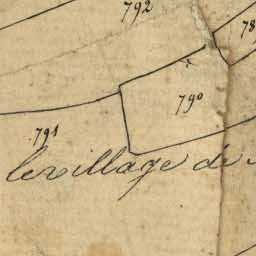 792
78
790
791
le village de